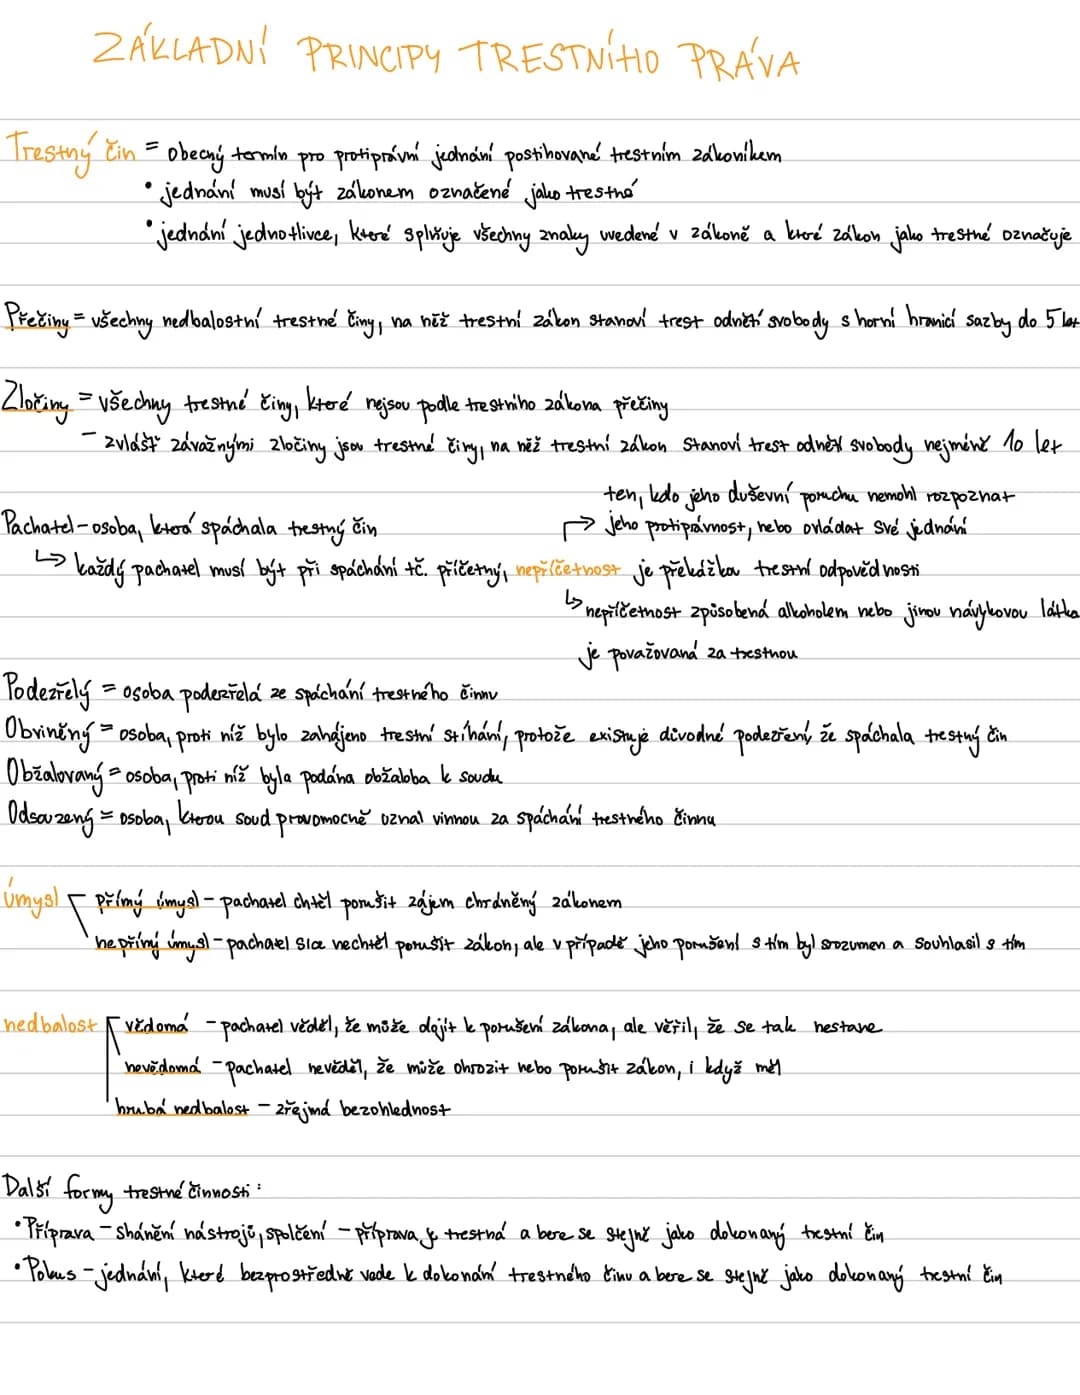 ZÁKLADNÍ PRINCIPY TRESTNÍHO PRÁVA
Trestný čin = obecný termín pro protiprávní jednání postihované trestním zákoníkem
• jednání musí být zákonem označené jako trestné
• jednání jednotlivce, které splňuje všechny znaky uvedené v zákoně a které zákon jako trestné označuje
Přečiny = všechny nedbalostní trestné činy, na něž trestní zákon stanoví trest odnětí svobody s horní hranicí sazby do 5 let
Zločiny = všechny trestné činy, které nejsou podle trestního zákona přečiny
- zvlášť závažnými zločiny jsou trestné činy, na něž trestní zákon stanoví trest odnětí svobody nejméně 10 let
ten, kdo jeho duševní poruchu nemohl rozpoznat
Pachatel - osoba, která spáchala trestný čin → jeho protiprávnost, nebo ovládat své jednání
↳ každý pachatel musí být při spáchání tč. příčetný, nepříčetnost je překážkou trestní odpovědnosti
↳ nepříčetnost způsobená alkoholem nebo jinou návykovou látka
je považovaná za trestnou
Podezřelý = osoba podezřelá ze spáchání trestného činnu
Obviněný = osoba, proti níž bylo zahájeno trestní stíhání, protože existuje důvodné podezření, že spáchala trestný čin
Obžalovaný = osoba, proti níž byla podána obžaloba k soudu
Odsouzený = osoba, kterou soud pravomocně uznal vinnou za spáchání trestného činnu
Úmysl přímý úmysl - pachatel chtěl porušit zájem chráněný zákonem
nepřímý úmysl - pachatel sice nechtěl porušit zákon, ale v případě jeho porušení s tím byl srozumen a souhlasil s tím
nedbalost vědomá - pachatel věděl, že může dojít k porušení zákona, ale věřil, že se tak nestane
nevědomá - pachatel nevěděl, že může ohrozit nebo porušit zákon, i když měl
hrubá nedbalost - zřejmá bezohlednost
Další formy trestné činnosti:
• Příprava - shánění nástrojů, spolčení - příprava je trestná a bere se stejně jako dokonaný trestní čin
• Pokus - jednání, které bezprostředně vede k dokonání trestného činu a bere se stejně jako dokonaný trestní čin